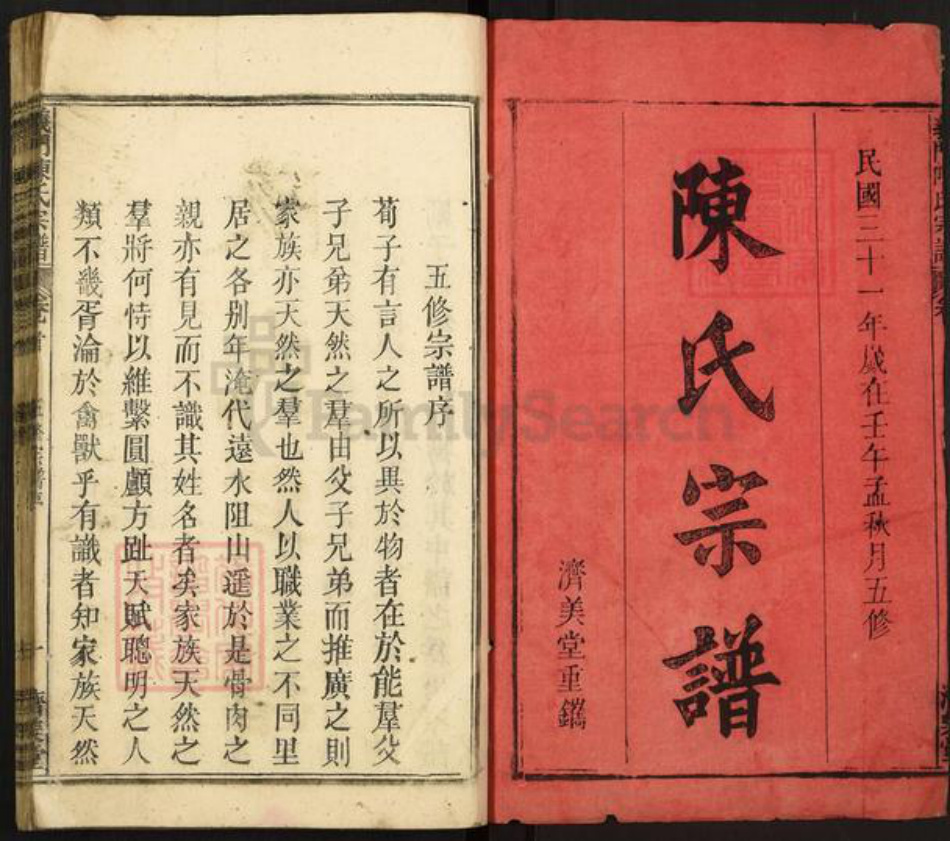 民國三十一年歲在壬午孟秋月五修
陳氏宗譜
濟美堂重鐫
五修宗譜序
荀子有言人之所以異於物者在於能羣父
子兄弟天然之羣由父子兄弟而推廣之則
家族亦天然之羣也然人以職業之不同里
居之各别年淹代遠水阻山遥於是骨肉之
親亦有見而不識其姓名者矣家族天然之
羣將何恃以維繫圓顱方趾天賦聰明之人
類不幾胥淪於禽獸乎有識者知家族天然
義門陳氏宗譜
五修宗譜序
FamilySearch